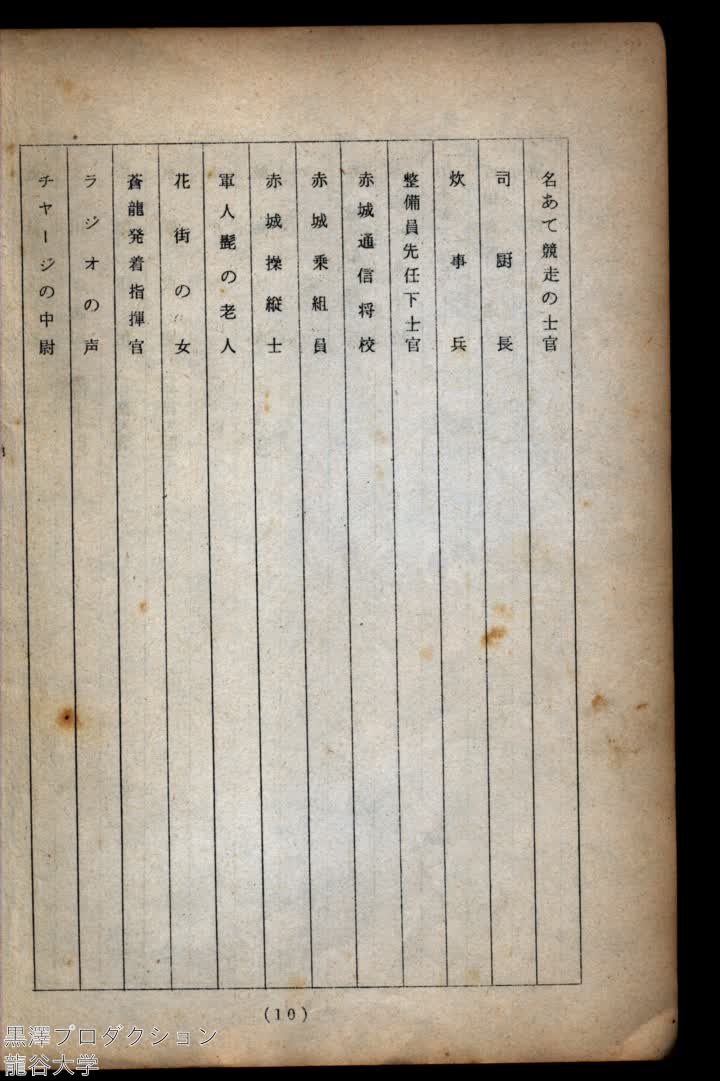 名あて競走の士官
司厨長
炊事兵
整備員先任下士官
赤城通信将校
赤城乗組員
赤城操縦士
軍人髭の老人
花街の女
蒼龍発着指揮官
ラジオの声
チャージの中尉
(10)
黒澤プロダクション
龍谷大学